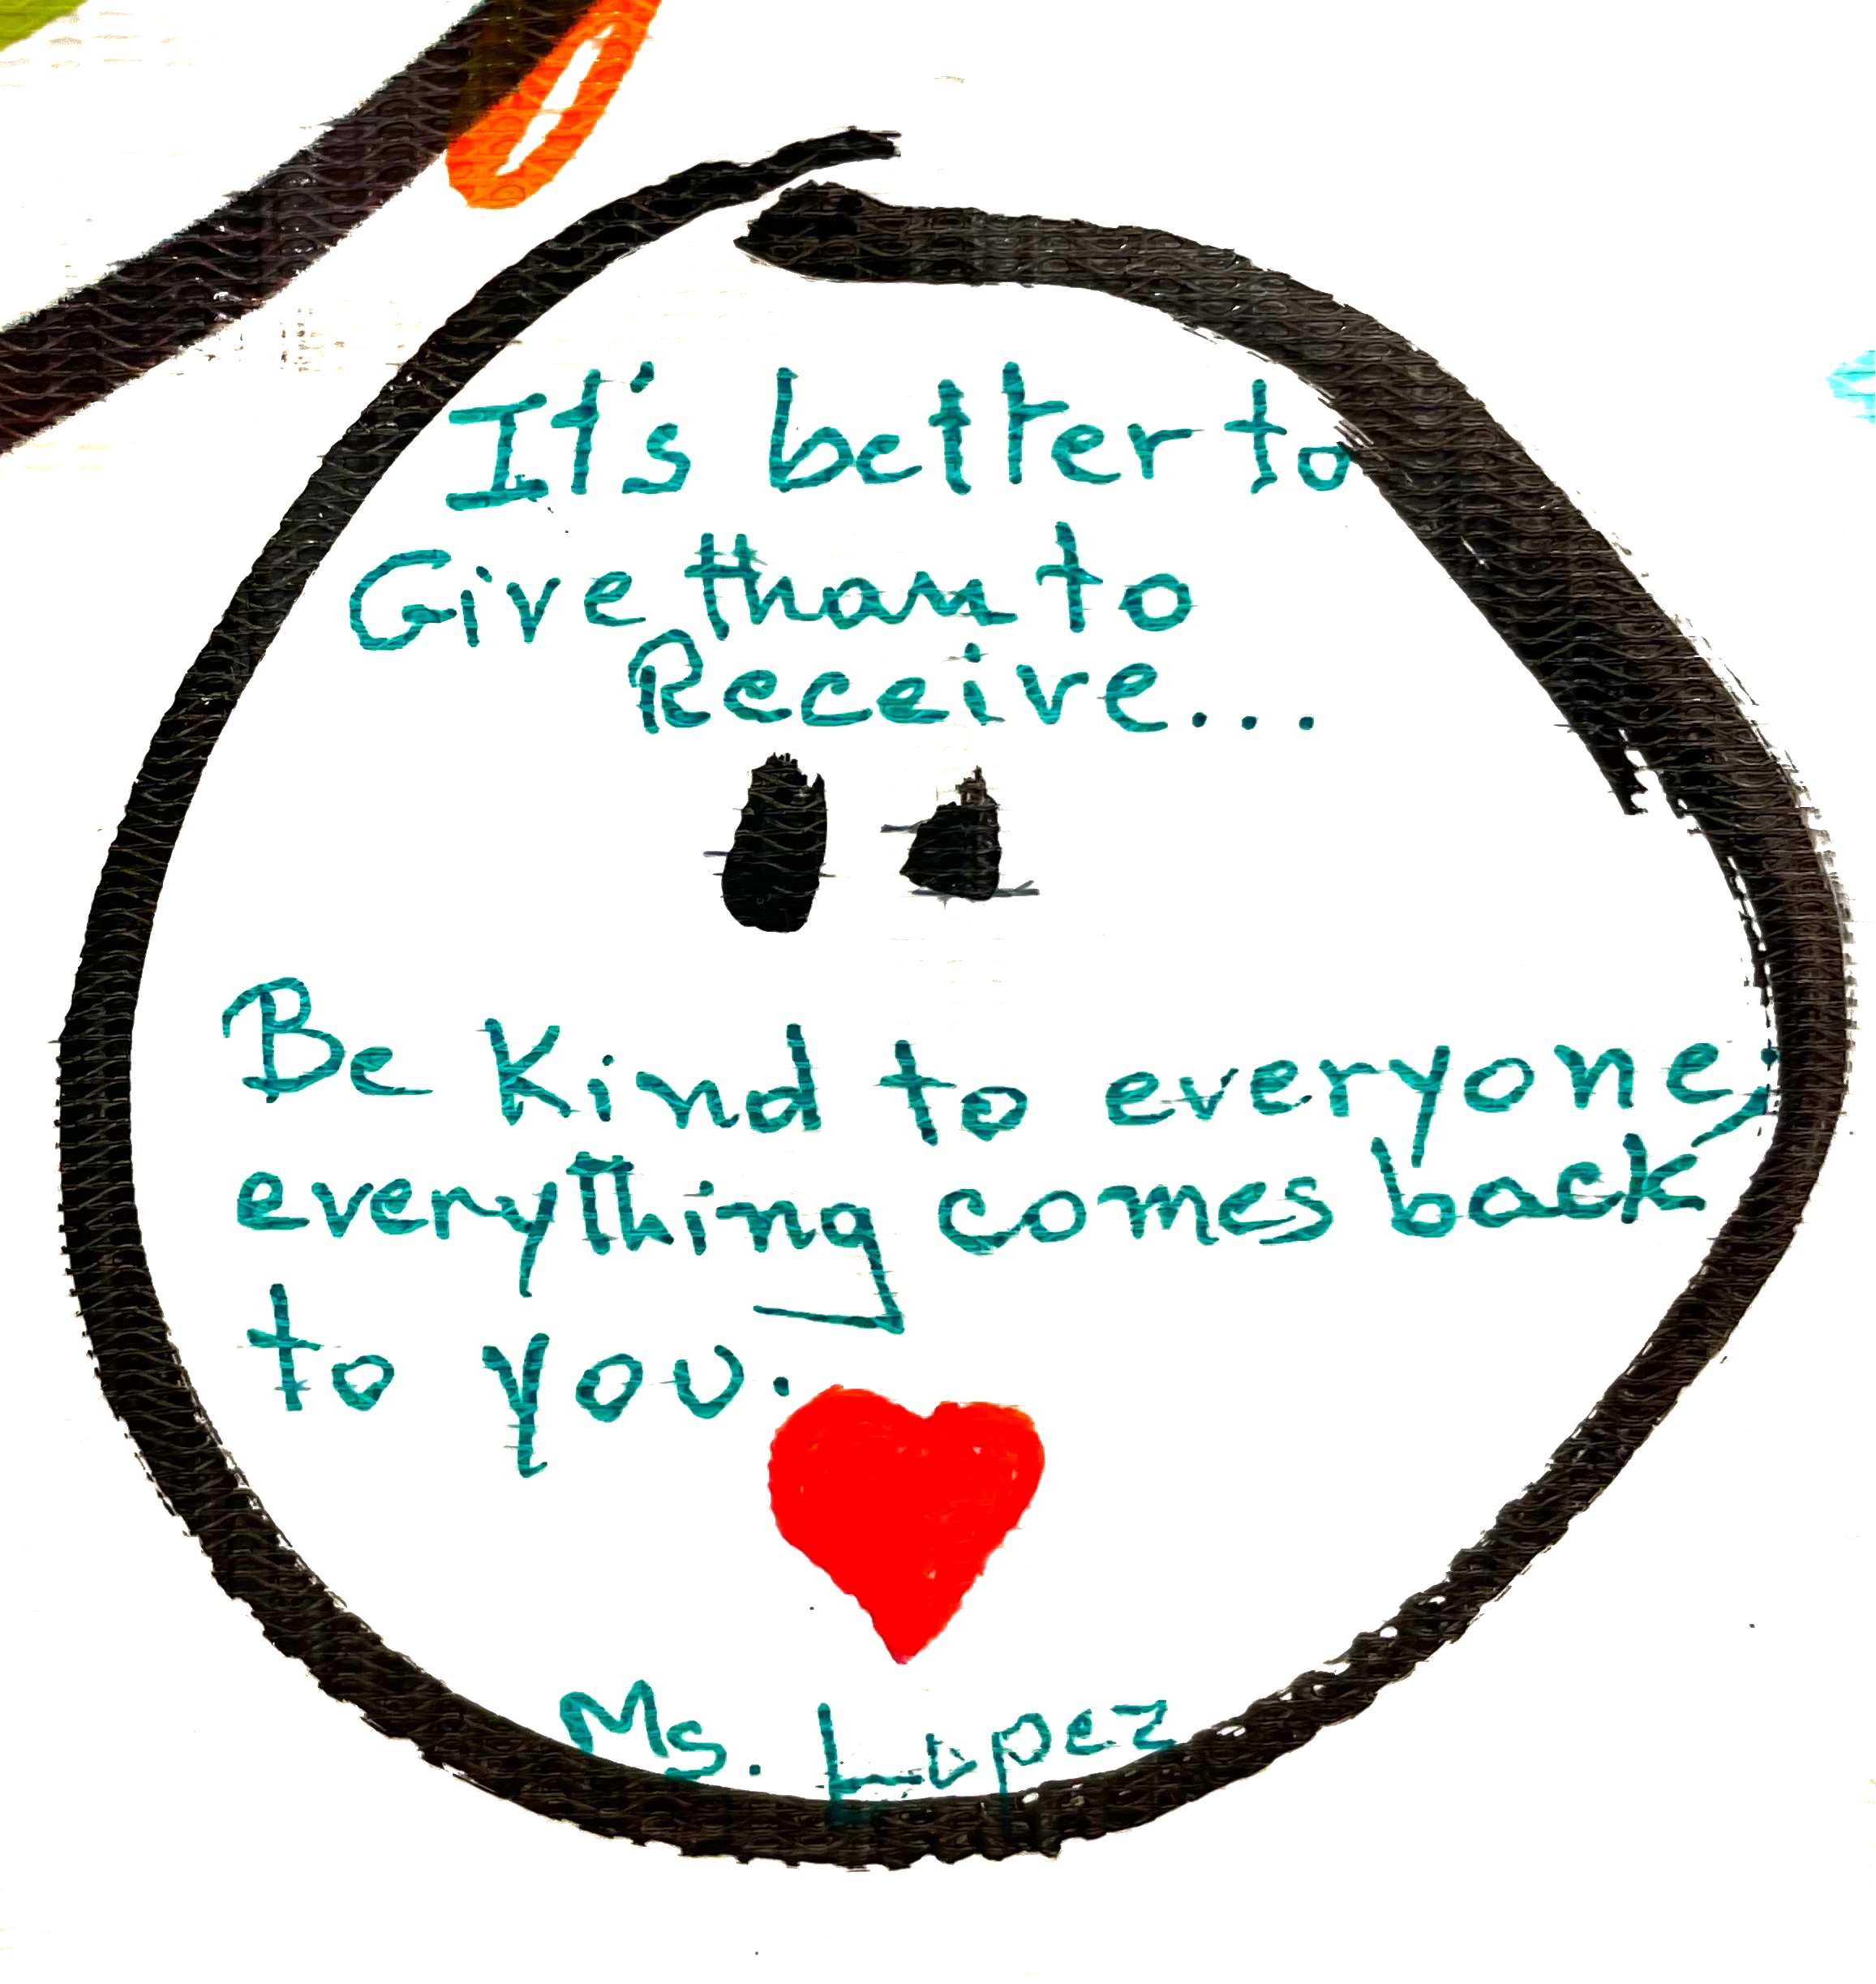 It's better to
Give than to
Receive...
Be Kind to everyone;
everything comes back
to you.
Ms. Lopez